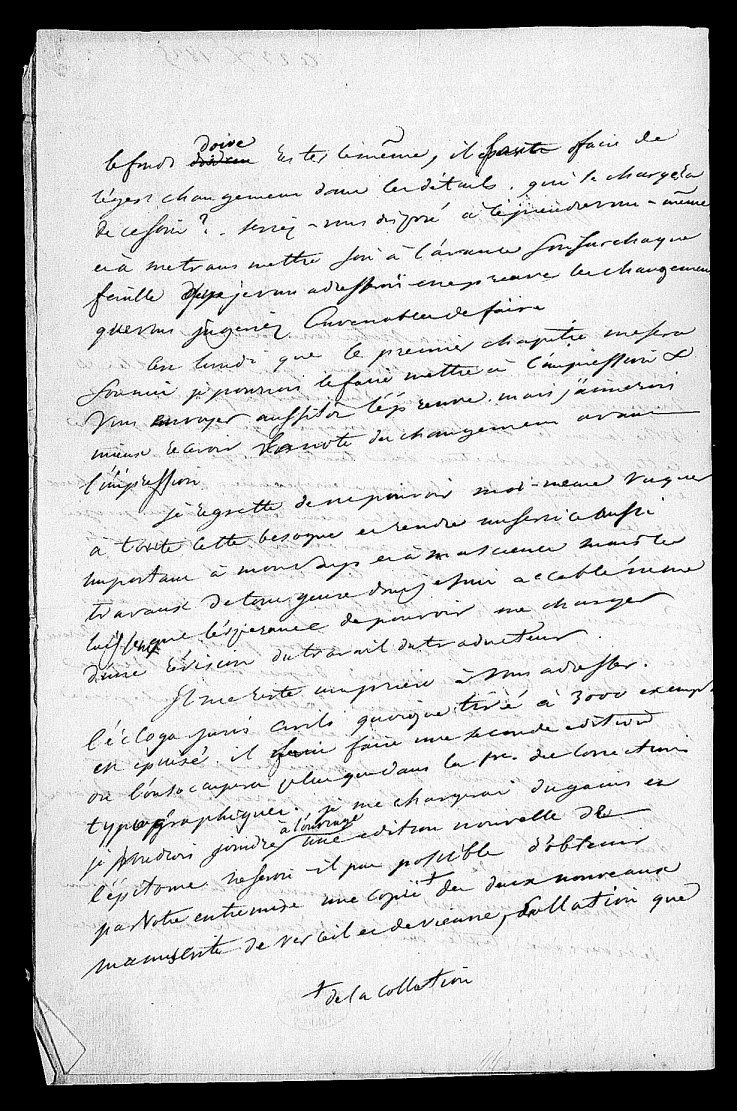 le fonds doive rester le même, il faut faire de
légers changemens dans les détails. qui se chargera
de ce soin? seriez-vous disposé à l'éprendre vous-même
et à me transmettre soit à l'avance soit sur chaque
feuille que je vous adresserai en epreuve les changemens
que vous jugeriez convenables de faire
lundi que le premier chapitre me sera
fourni je pourrai le faire mettre à l'impression &
vous envoyer aussitôt l'épreuve. mais j'aimerois
mieux recevoir la note du changemens avant
l'impression
je regrette de ne pouvoir moi-même vaquer
à toute cette besogne et rendre un service aussi
important à mon pays et à ma science mais les
travaux de tout genre dont je suis accablé même
l'espérance de pouvoir me charger
d'une révision du travail du traducteur.
Il me reste une prière à vous adresser.
l'écloga juris civilis quoique tiré à 3000 exempl
est épuisé. il faut faire une seconde edition
où l'on s'occupera plus que dans la pre. des corrections
typographiques. je me chargerai du gaius et
je voudrois joindre à l'ouvrage une edition nouvelle de
l'épitome ne seroit-il pas possible d'obtenir
par votre entremise une copie + des deux nouveaux
manuscrits de Verceil et de vienne, collation que
+ de la collation